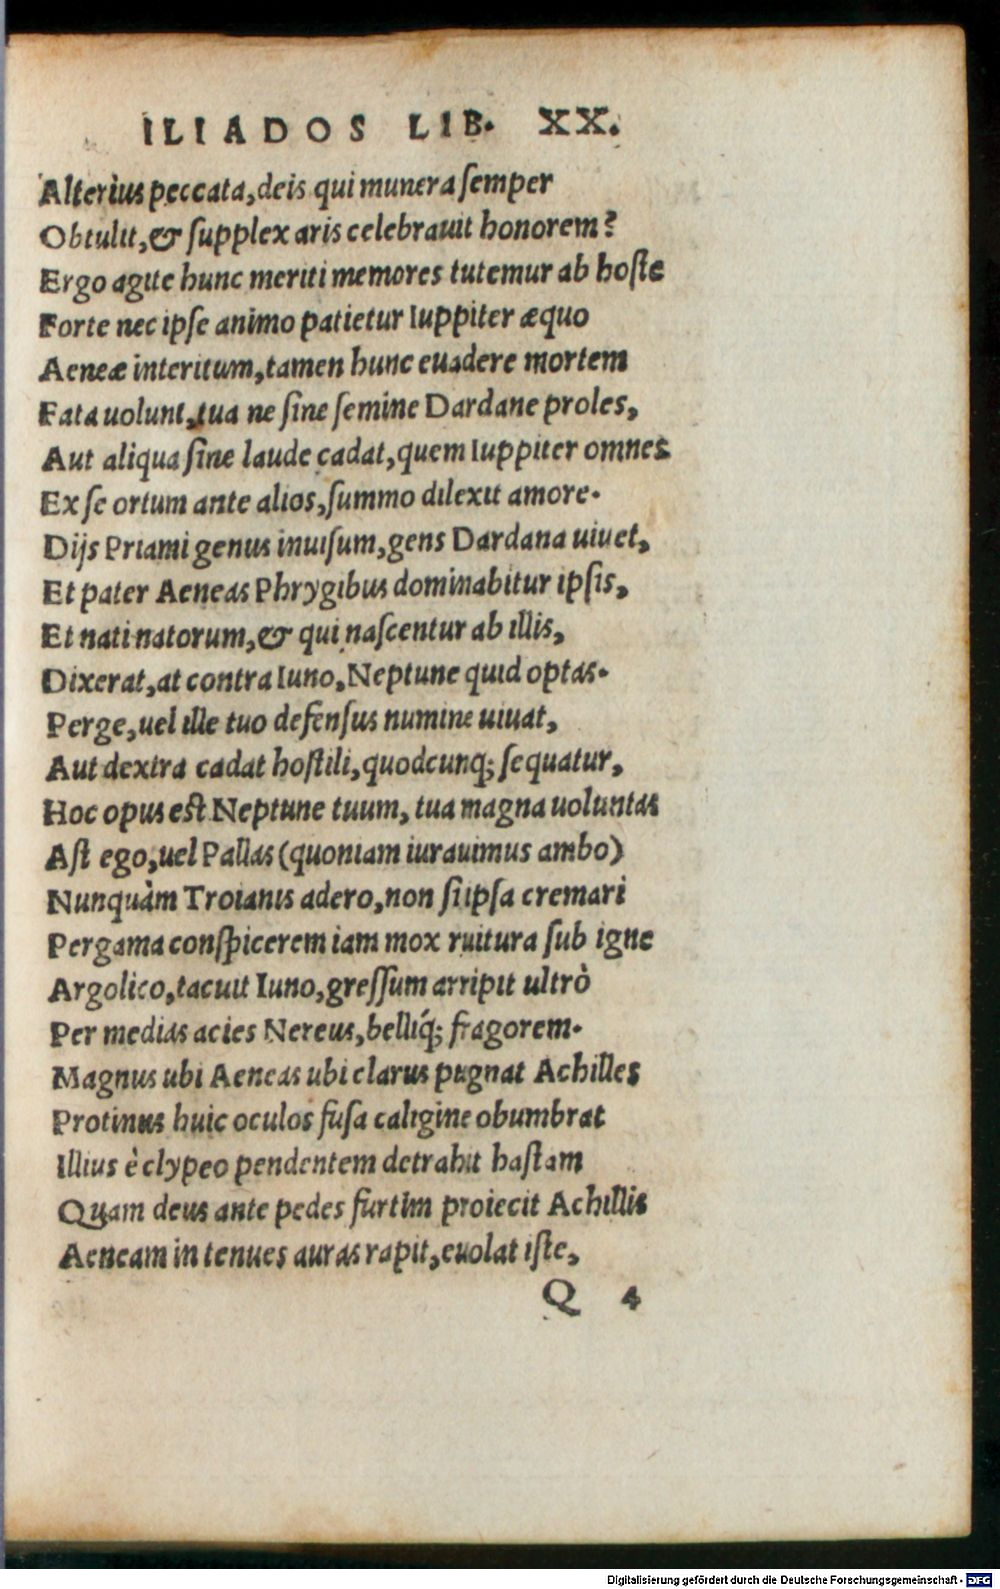 ILIADOS LIB. XX.
Alterìus peccata, deis qui munera ſemper
Obtulit, & ſupplex aris celebrauit honorem?
Ergo agite hunc meriti memores tutemur ab hoſte
Forte nec ipſe animo patietur Iuppiter æquo
Aeneæ interitum, tamen hunc euadere mortem
Fata uolunt, tua ne ſine ſemine Dardane proles,
Aut aliqua ſine laude cadat, quem Iuppiter omnes
Ex ſe ortum ante alios, ſummo dilexit amore.
Dijs Priami genus inuiſum, gens Dardana uiuet,
Et pater Aeneas Phrygibus dominabitur ipſis,
Et nati natorum, & qui naſcentur ab illis,
Dixerat, at contra Iuno, Neptune quid optas.
Perge, uel ille tuo defenſus numine uiuat,
Aut dextra cadat hoſtili, quodcunq; ſequatur,
Hoc opus eſt Neptune tuum, tua magna uoluntas
Aſt ego, uel Pallas (quoniam iurauimus ambo)
Nunquàm Troianis adero, non ſi ipſa cremari
Pergama conſpicerem iam mox ruitura ſub igne
Argolico, tacuit Iuno, greſſum arripit ultrò
Per medias acies Nereus, belliq́; fragorem.
Magnus ubi Aeneas ubi clarus pugnat Achilles
Protinus huic oculos fuſa caligine obumbrat
Illius è clypeo pendentem detrahit haſtam
Quam deus ante pedes furtim proiecit Achillis
Aeneam in tenues auras rapit, euolat iſte,
Q 4
Digitalisierung gefördert durch die Deutsche Forschungsgemeinschaft - DFG